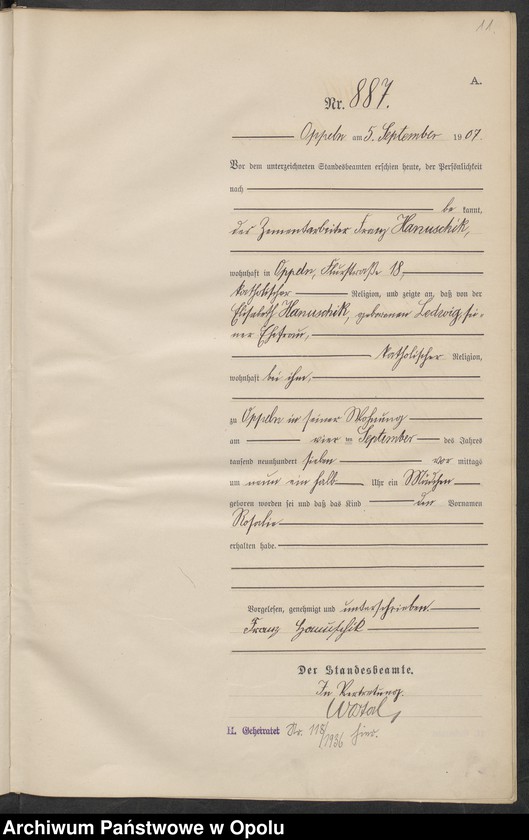 11
A.
Nr. 887.
Oppeln am 5. September 1907.
Vor dem unterzeichneten Standesbeamten erschien heute, der Persönlichkeit
nach
be kannt,
der Zementarbeiter Franz Hanuschik,
wohnhaft in Oppeln, Flurstraße 18,
katholischer Religion, und zeigte an, daß von der
Elisabeth Hanuschik, geborenen Ledwig, sei-
ner Ehefrau,
katholischer Religion,
wohnhaft bei ihm,
zu Oppeln in seiner Wohnung
am vier ten September des Jahres
tausend neunhundert sieben vor mittags
um neun ein halb Uhr ein Mädchen
geboren worden sei und daß das Kind den Vornamen
Rosalie
erhalten habe.
Vorgelesen, genehmigt und unterschrieben
Franz Hanuschik
Der Standesbeamte.
In Vertretung.
II. Geheiratet Nr. 118/1936 hier.
Archiwum Państwowe w Opolu